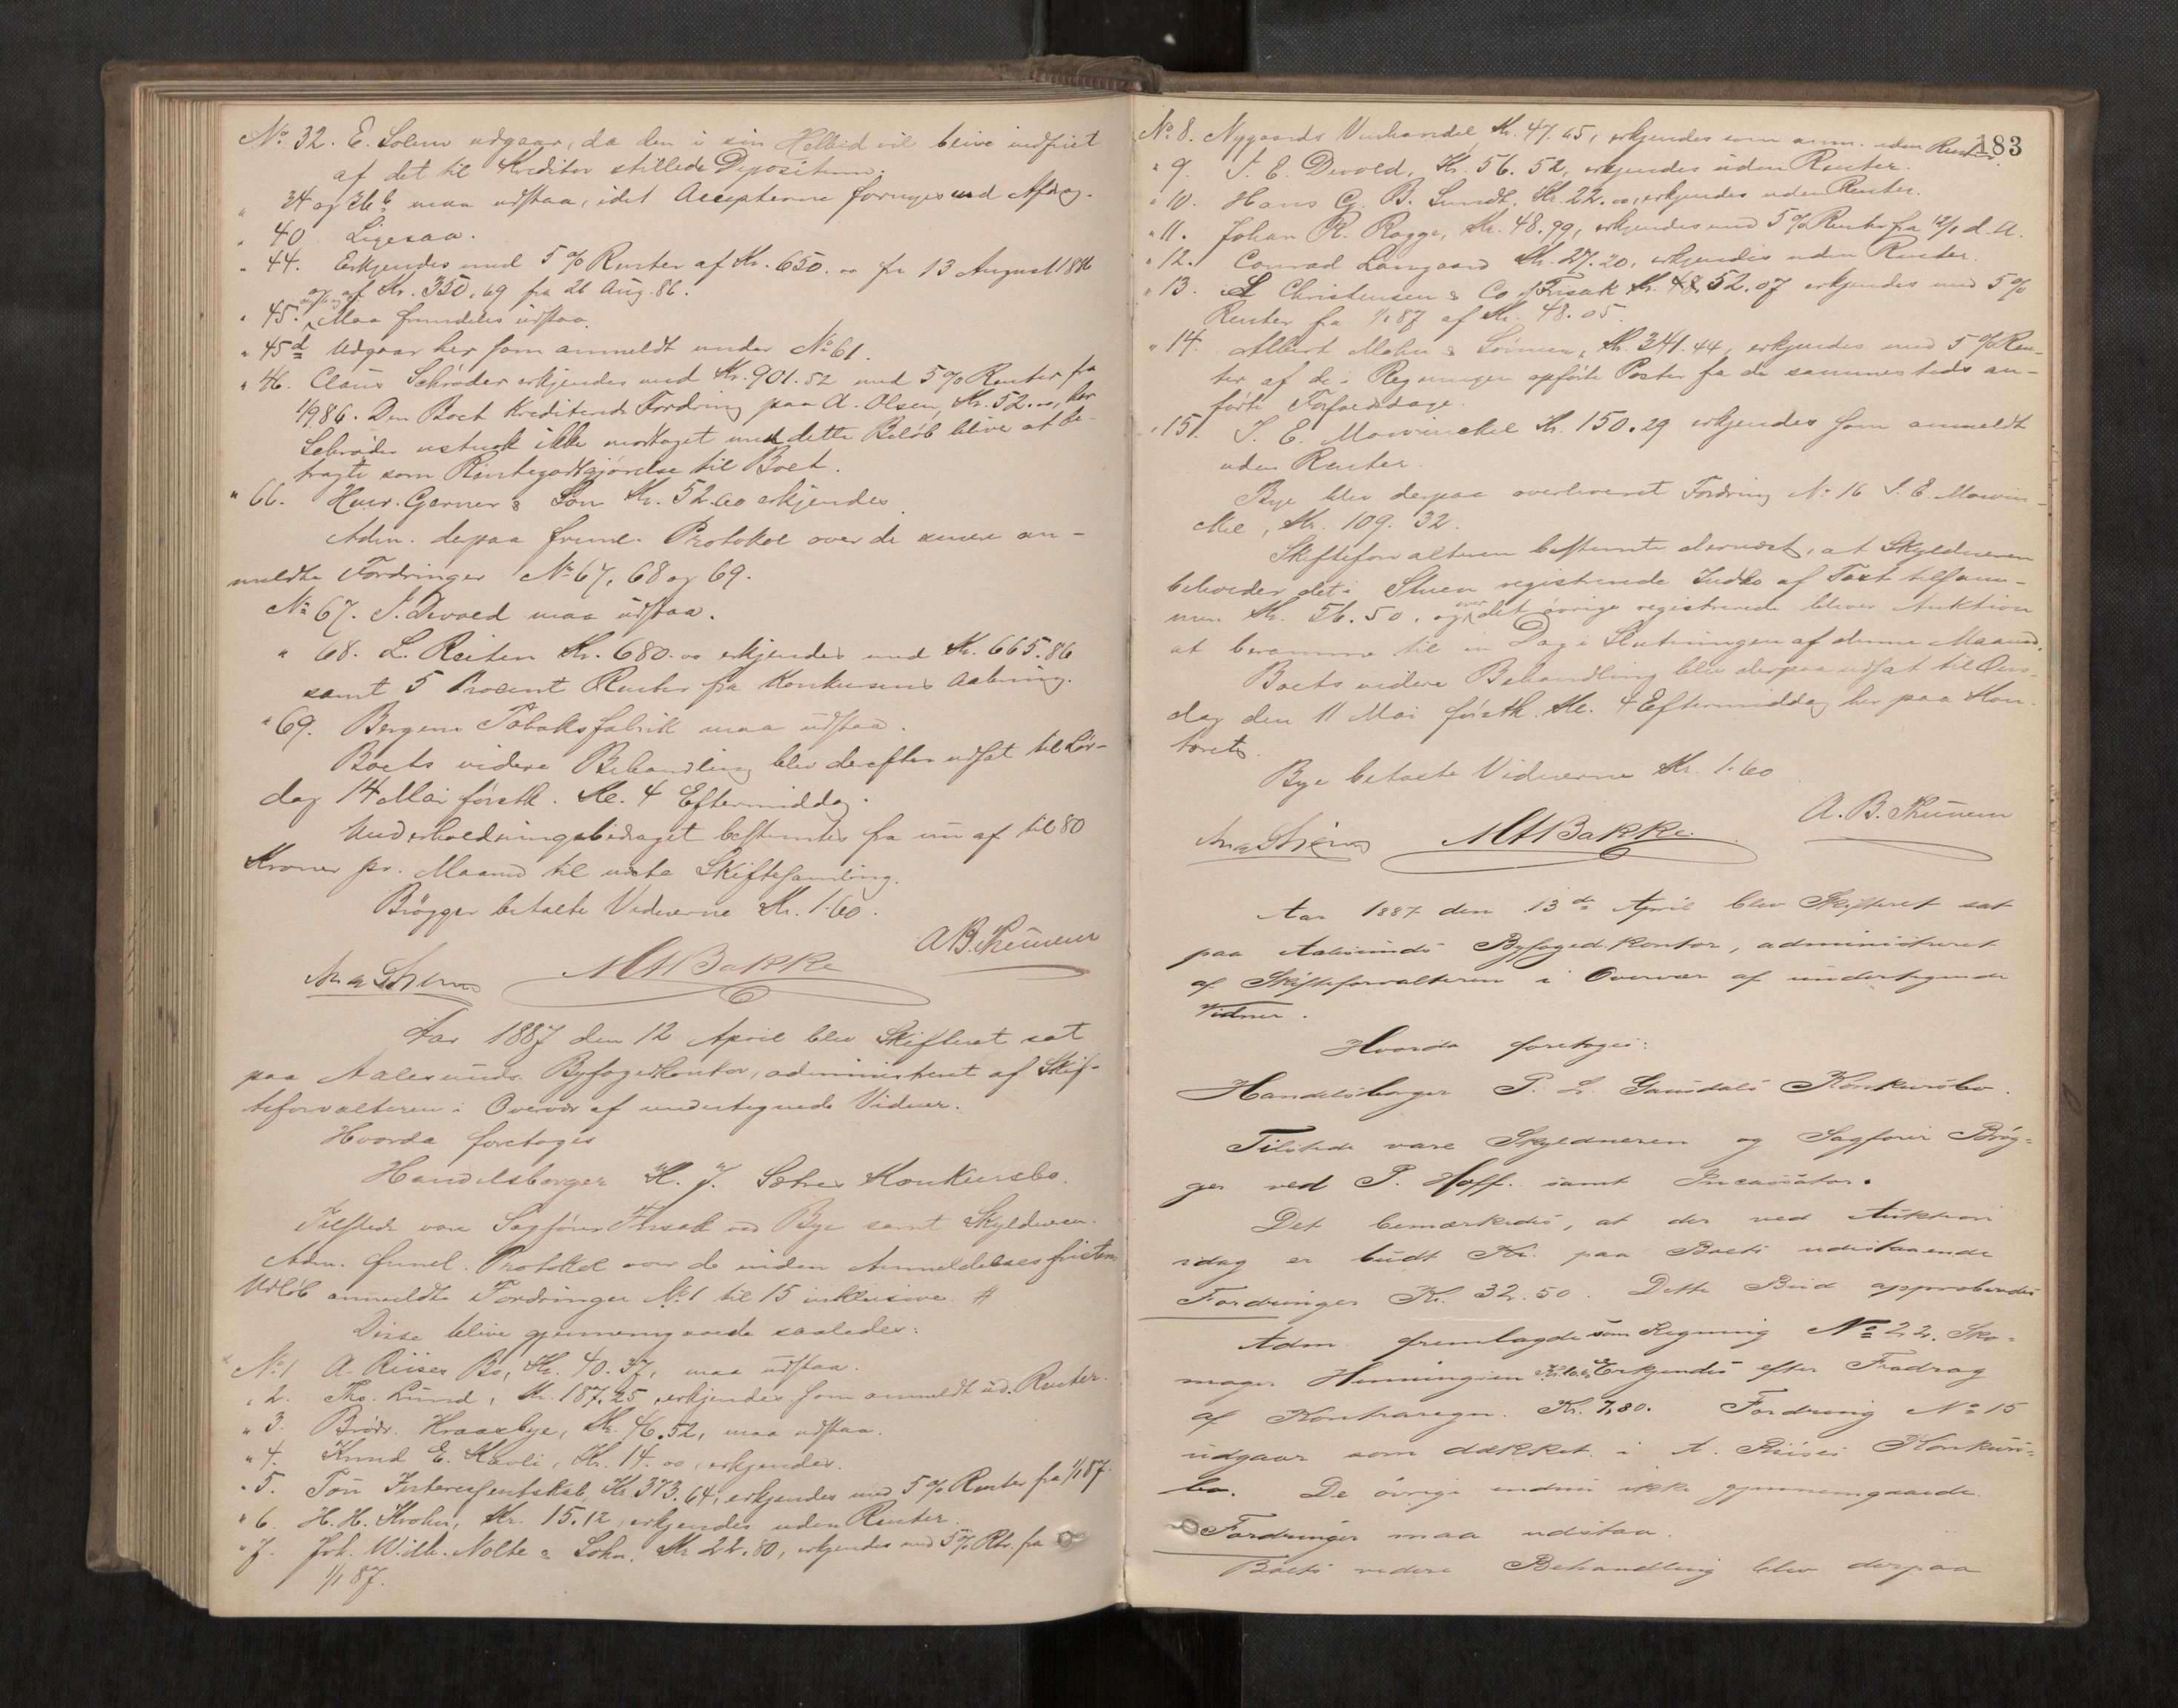 No 32. E. Solem udgaar, da den i sin Helhed vil blive indfriet
af det til Kreditor stillede Depositum.
" 34 og 36 b maa udstaa, idet Accepterne fornyes med Afdrag.
" 40 Ligesaa.
" 44. Erkjendes med 5 % Renter af Kr. 650.00 fra 13 August 1886
og af Kr. 350,69 fra 26 Aug. 86.
" 45. Maa fremdeles udstaa.
" 45 d Udgaar her som anmeldt under No 61.
" 46. Claus Schrøder erkjendes med Kr. 901.52 med 5 % Renter fra
1/9 86. Den Boet krediterede Fordring paa A. Olsen, Kr. 52.00, har
Schrøder ikke modtaget dette Beløb bliver at be-
tragte som til Boet.
" 66. Henr. Gerner & Søn Kr. 52.60 erkjendes.
Adm. derpaa freml. Protokol over de senere an-
meldte Fordringer No 67, 68 og 69.
No 67. J. Devold maa udstaa.
" 68. L. Reiten Kr. 680.00 erkjendes med Kr. 665.86
samt 5 Procent Renter fra Konkursens Aabning.
" 69. Bergens Tobaksfabrik maa udstaa.
Boets videre Behandling blev derefter udsat til Lør-
dag 14 Mai førstk. Kl. 4 Eftermiddag.
Underholdningsbidraget bestemtes fra nu af til 80
Kroner pr. Maaned til næste Skiftesamling.
Brøgger betalte Vidnerne Kr. 1.60.
A B. Thuesen
M A Bakke
Aar 1887 den 12 April blev Skifteret sat
paa Aalesunds Byfogedkontor, administreret af Skif-
teforvalteren i Overvær af undertegnede Vidner.
Hvorda foretoges
Handelsborger K. J. Sætres Konkursbo.
Tilstede vare Sagfører Thisak ved Bye samt Skyldneren.
Adm. freml. Protokol over de inden Anmeldelsesfristens
Udløb anmeldte Fordringer No 1 til 15 inklusive. #
Disse blive gjennemgaaede saaledes:
No 1 A. Riises Bo, Kr. 40.37, maa udstaa.
" 2. Ths. Lund, Kr. 187.25, erkjendes som anmeldt ud. Renter.
" 3. Brødr. Kraasbye, Kr. 46.52, maa udstaa.
" 4. Knud E. Kavli, Kr. 14.00, erkjendes.
" 5. Tøn Interessentskab, Kr 373.64, erkjendes med 5 % Renter fra 1/1 87.
" 6. H. H. Krohn, Kr. 15.12, erkjendes uden Renter.
" 7. Joh. Wilh. Nolte & Sohn, Kr 22.80, erkjendes med 5 % Rtr. fra
1/1 87.
183
No 8. Nygaards Vinhandel, Kr. 47.65, erkjendes som anm. uden Renter.
" 9. J. E. Devold, Kr. 56.52, erkjendes uden Renter.
" 10. Hans G. B. Sundt, Kr. 22.00, erkjendes uden Renter.
" 11. Johan R. Rogge, Kr. 48.99, erkjendes med 5 % Renter fra 12/1 d. A.
" 12. Conrad Langaard Kr. 27.20, erkjendes uden Renter.
" 13. Christensen & Co Kr. 52.07 erkjendes med 5 %
Renter fra 1/1 87 af Kr. 48.05.
" 14. Albert Mohn & Sønner, Kr. 341.44, erkjendes med 5 % Ren-
ter af de i Regningen opførte Poster fra de sammesteds an-
førte Forfaldsdage.
" 15. J. E. Mowinckel Kr. 150.29 erkjendes som anmeldt
uden Renter.
Bye blev derpaa overleveret Fordring No 16 J. E. Mowin-
ckel, Kr. 109.32.
Skifteforvalteren bestemte dernæst, at Skyldneren
beholder det i Stuen registrerede Indbo af Taxt tilsam-
men Kr. 56.50, og over det øvrige registrerede bliver Auktion
at beramme til en Dag i Slutningen af denne Maaned.
Boets videre Behandling blev derpaa udsat til Ons-
dag den 11 Mai førstk. Kl. 4 Eftermiddag her paa Kon-
toret.
Bye betalte Vidnerne Kr. 1.60
M A Bakke
A. B. Thuesen
Aar 1887 den 13de April blev Skifteret sat
paa Aalesunds Byfogedkontor, administreret
af Skifteforvalteren i Overvær af undertegnede
Vidner.
Hvorda foretoges:
Handelsborger P. L. Gausdals Konkursbo.
Tilstede vare Skyldneren og Sagfører Brøg-
ger ved P. Hoff. samt Incassator.
Det bemærkedes, at der ved Auktion
idag er budt Kr. paa Boets udestaaende
Fordringer Kr. 32.50. Dette Bud approberedes
Adm. fremlagde som Regning No 22. Sko-
mager Henningsen Erkjendes efter Fradrag
af Kontraregn. Kr. 7,80. Fordring No 15
udgaar som dækket i A. Riises Konkurs-
bo. De øvrige endnu ikke gjennemgaaede
Fordringer maa udstaa.
Boets videre Behandling blev derpaa